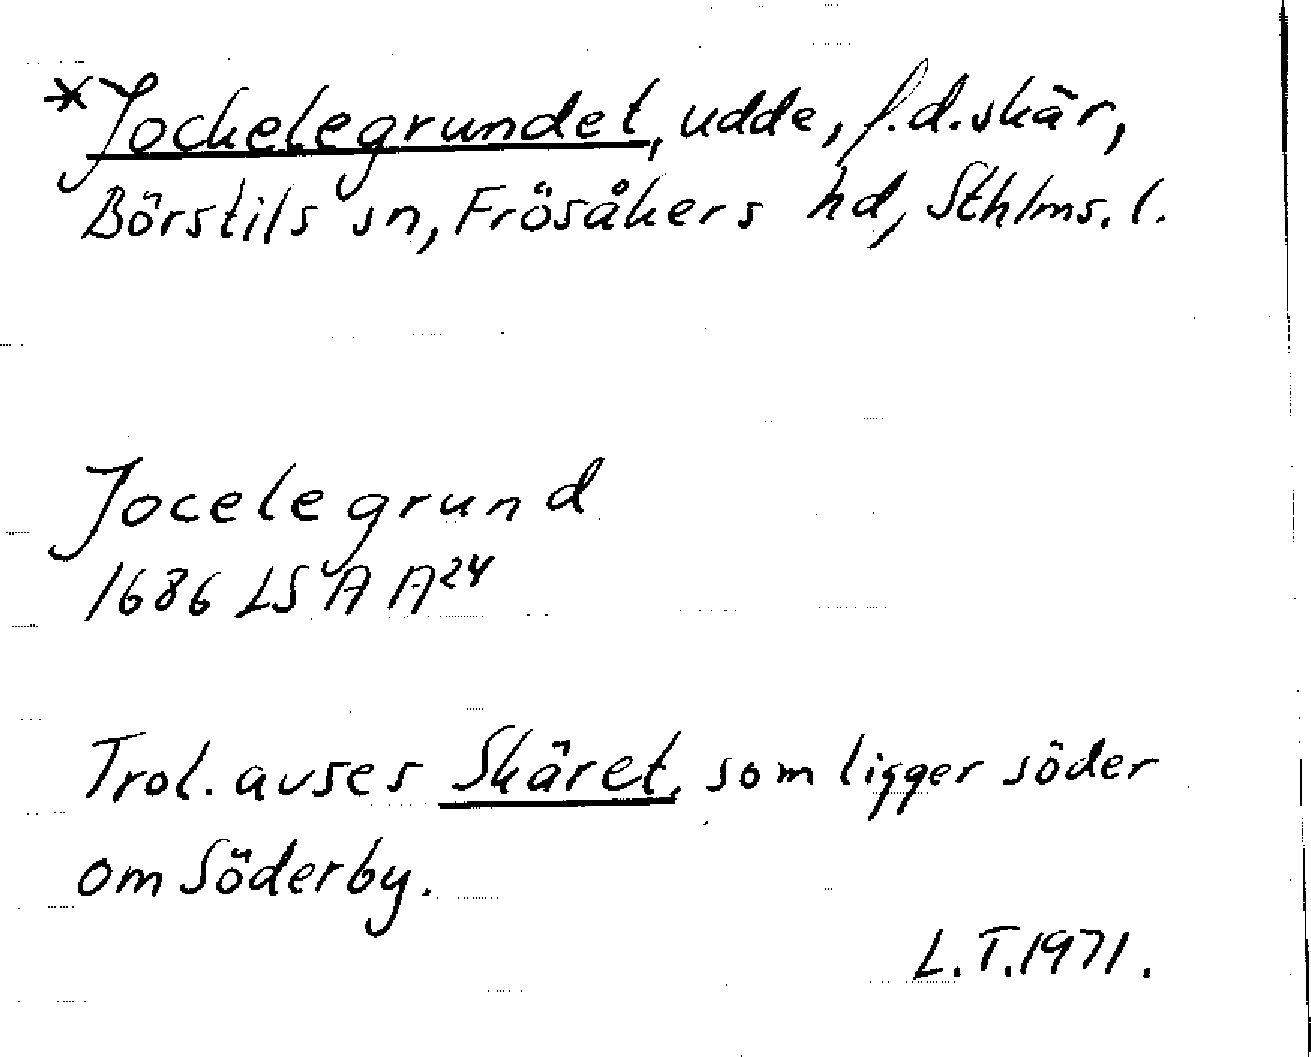 *Jockelegrundet, udde, f.d. skär,
Börstils sn, Frösåkers hd, Sthlms. l.
Jocelegrund
1686 LSA A24
Trol. avses Skäret, som ligger söder
om Söderby.
L.T. 1971.